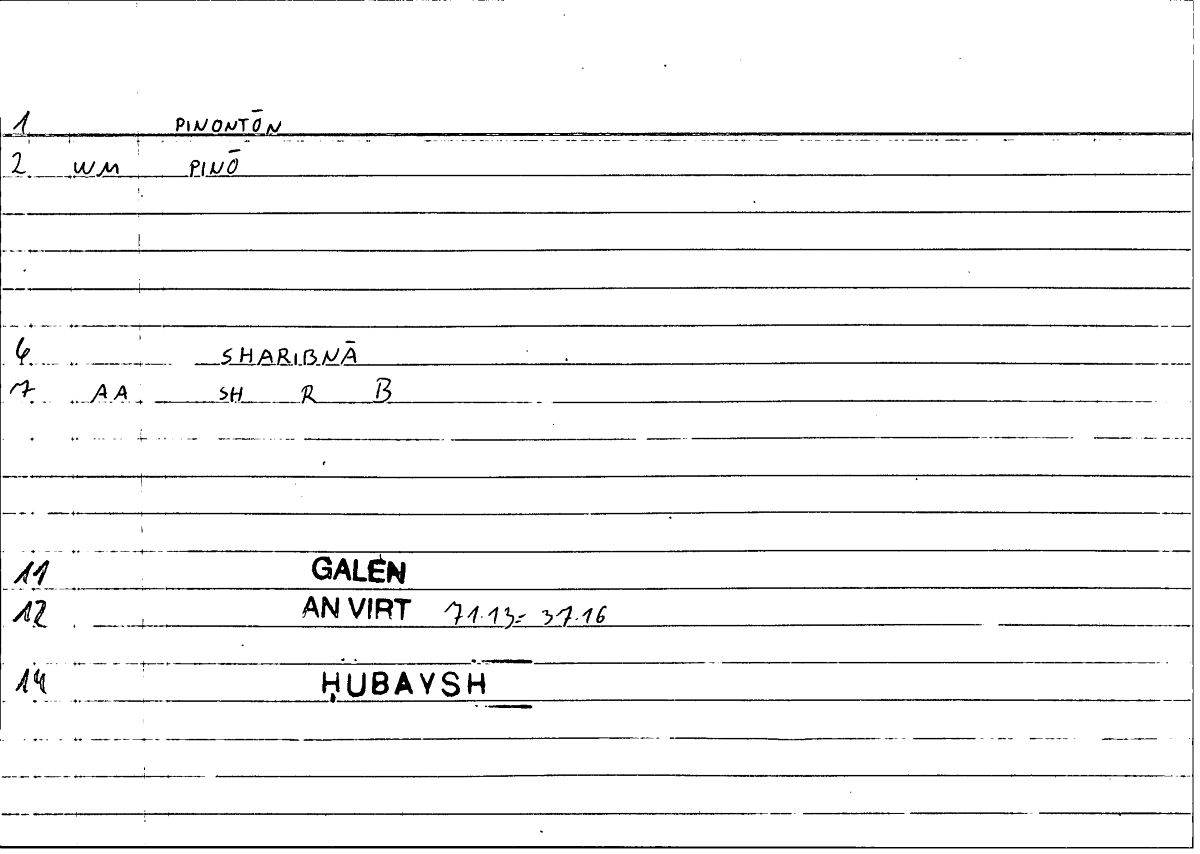 1 PINONTŌN
2. WM PINŌ
6 SHARIBNĀ
7 AA SH R B
11 GALEN
12 AN VIRT 71.13= 37.16
14 ḤUBAYSH